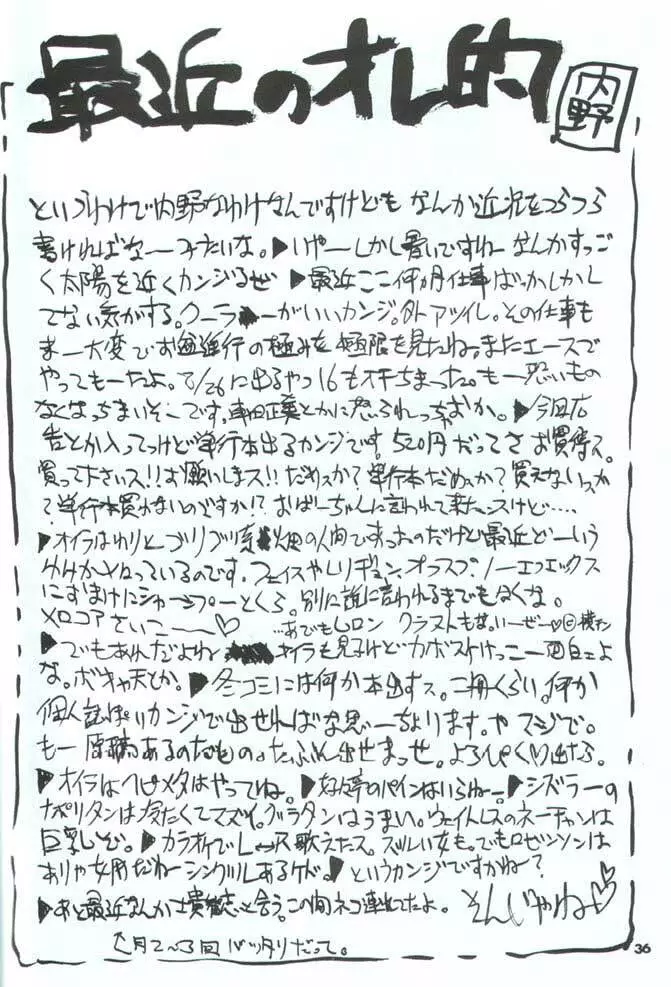 最近のオレ的
内野
というわけで内野なわけなんですけども なんか近況をつらつら
書ければなーみたいな。▶いやーしかし暑いですねーなんかすっご
く太陽を近くカンジるぜ ▶最近ここ何カ月仕事ばっかしかし
てない気がする。クーラーがいいカンジ。外アツイし。その仕事も
まー大変です 進行の極みを極限を見たね。またエースで
やってもーたよ。8/26に出るやつ16もオチちまった。もー恐いもの
なくなっちまいそーです。車田正美とかに怒られっちゃおか。▶今回広
告とか入ってっけど単行本出るカンジです。520円だってさ お買得ス。
買って下さいス!!お願いしまス!!だめスか?単行本だめスか?買えないスか
?単行本買わないのですか!?おばーちゃんに言われて来たスけど……
▶オイラはわりとゴリゴリ系 畑の人間ですったのだけど最近どーいう
わけか メロっているのです。フェイス レリジョン、オフスプ、ノーエフエックス
におまけにシャープーとくら。別に誰に言われるまでもなくな。
メロコアさいこ——♡ …あでもLロン クラストも
▶でもあれだよね オイラも見るけど カボスけっこー面白えよ
な。ボキャ天とか。▶冬コミには何か本出すス。二冊くらい。何か
個人誌ぽいカンジで出せればな思ーちょります。や マジで。
もー原稿あるのなもの。たぶん出せまっせ。よろぴく♡出たら
▶オイラはヘビメタはやってねー。▶ のパインはいらねー。▶シズラーの
ナポリタンは冷たくてマズイ。グラタンはうまい。ウェイトレスのネーチャンは
巨乳しび。▶カラオケでレース歌えたス。ズルい女も。でもロビンソンは
ありゃ女用だねーシングルあるケド。▶というカンジですかねー?
▶あと最近なんか士貴智志と会う。この間ネコ連れてたよ。 そんじゃね♡♡
月2〜3回バッタリだって。
36